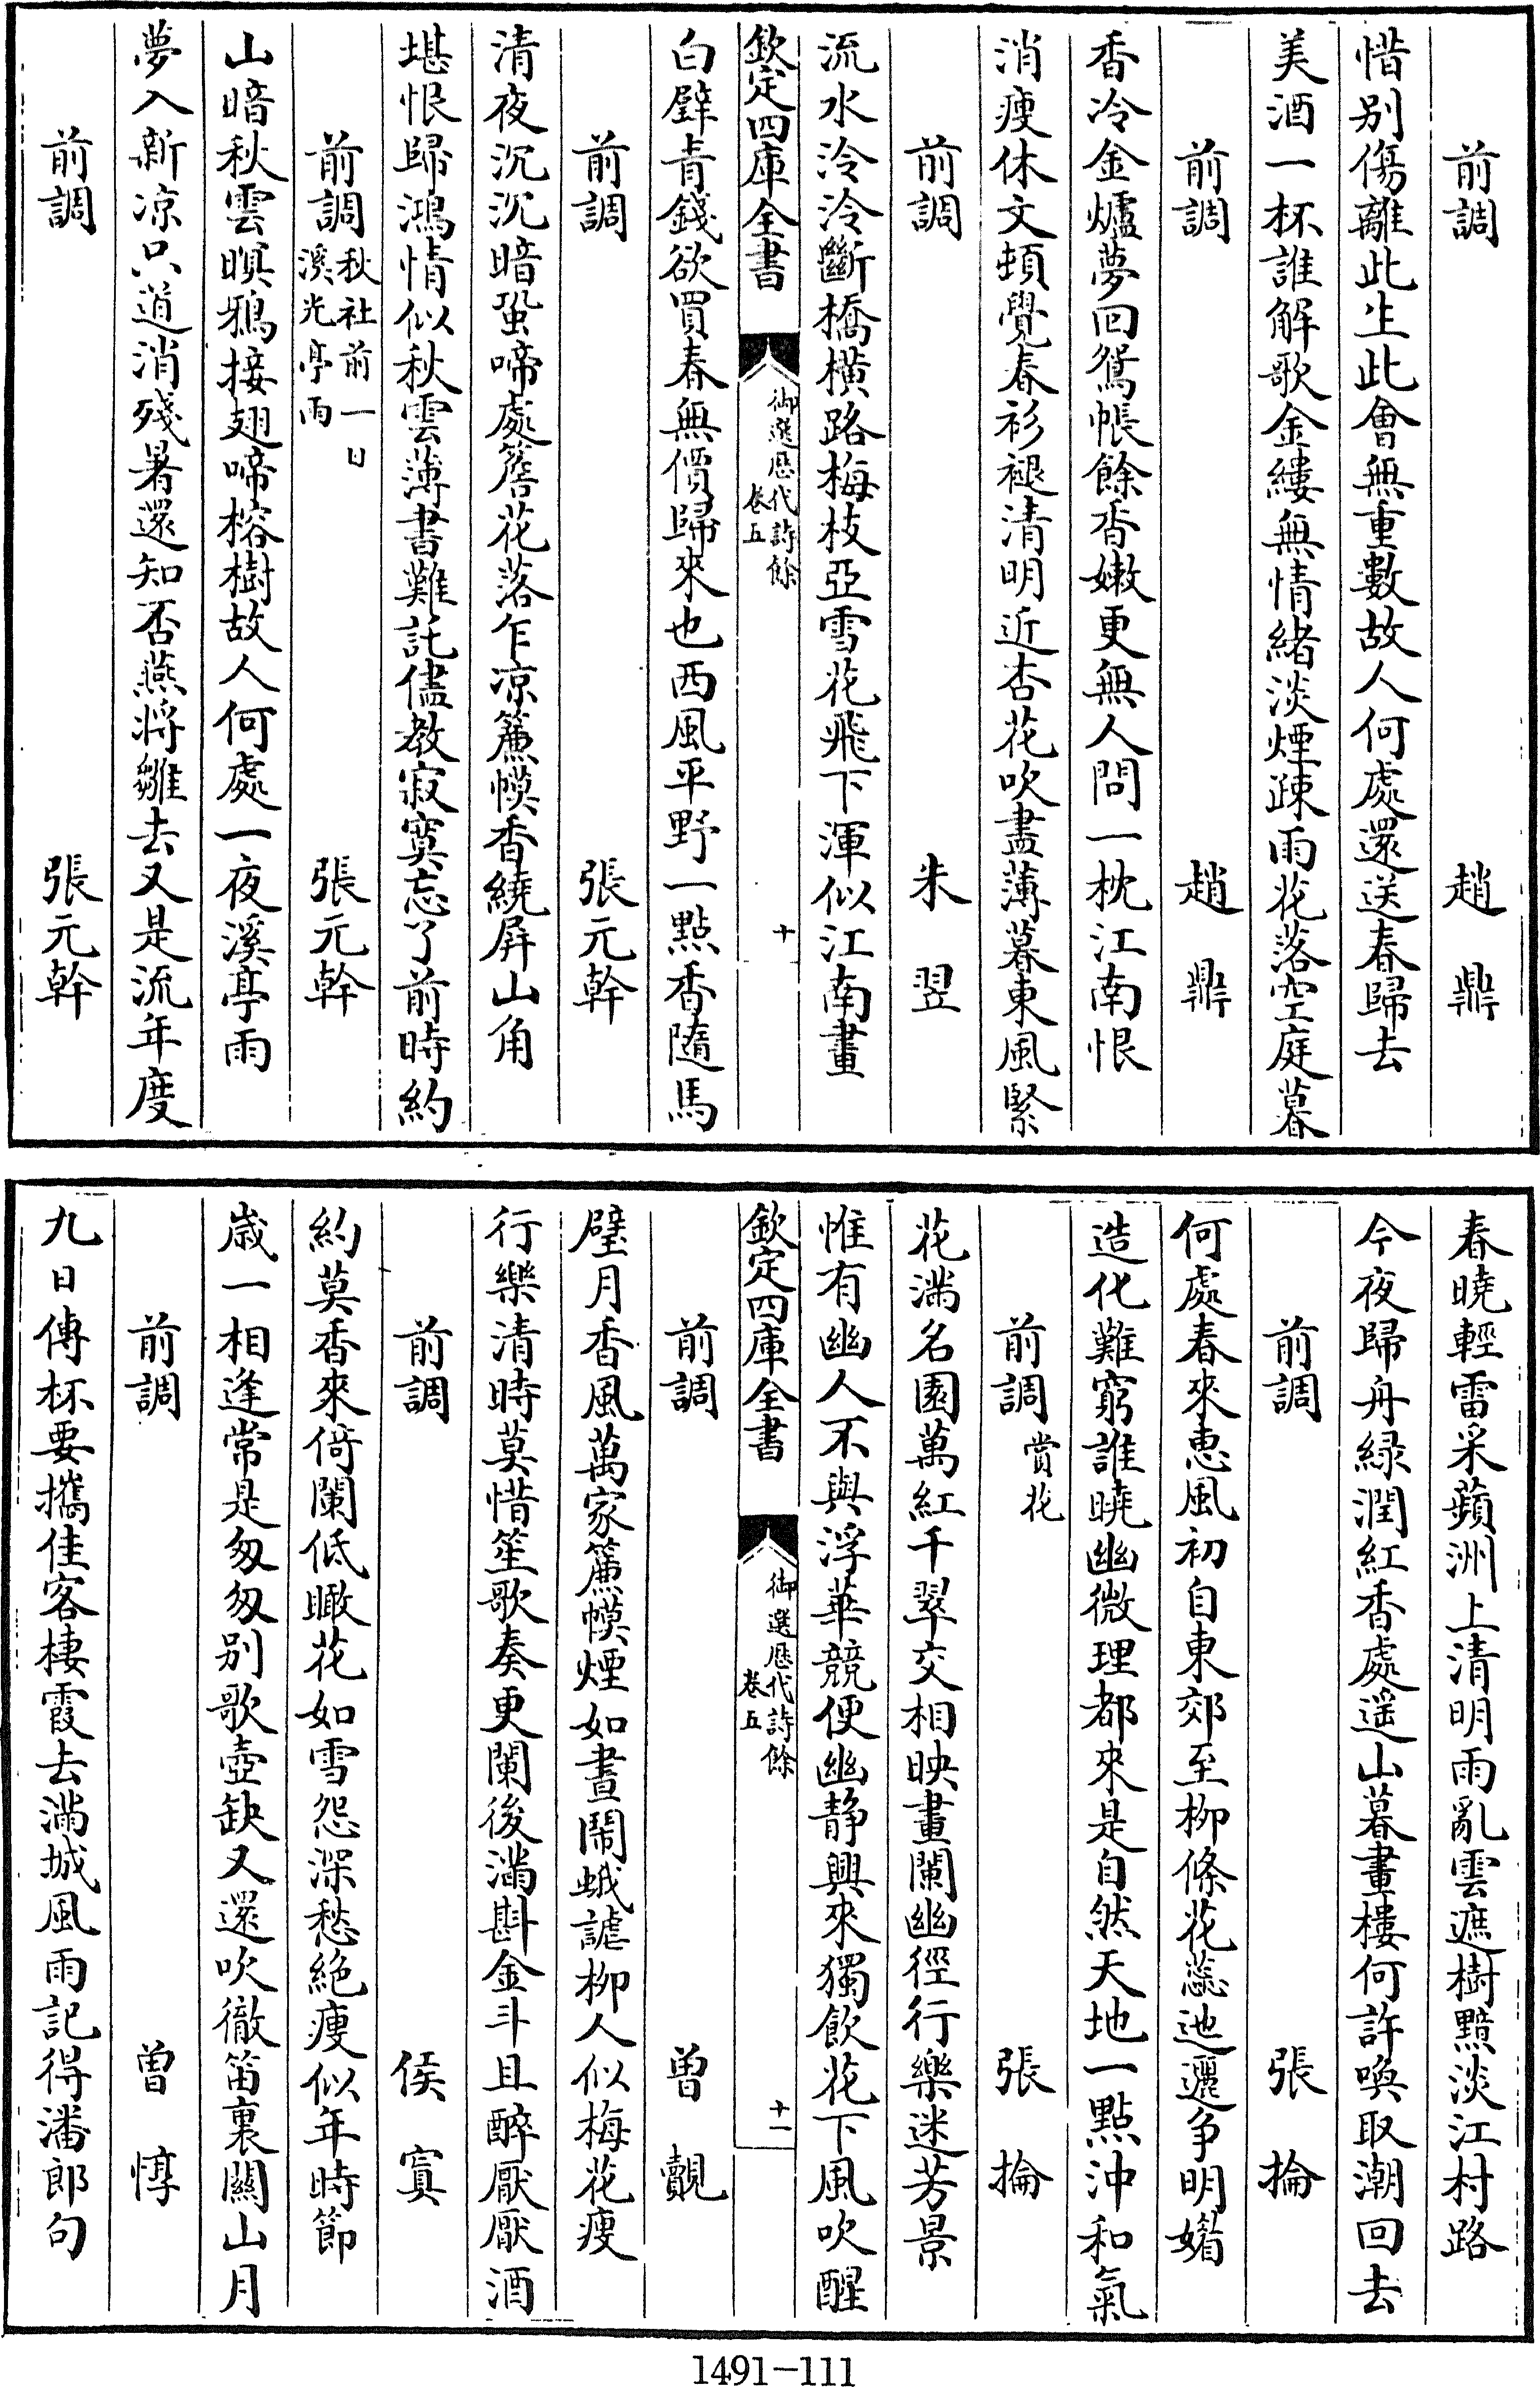 前調　趙鼎
惜别傷離此生此㑹無重數故人何處還送春歸去
美酒一杯誰解歌金縷無情緒淡煙疎雨花落空庭暮
前調　趙鼎
香冷金爐夢回鴛帳餘香嫩更無人問一枕江南恨
消瘦休文頓覺春衫褪清明近杏花吹盡薄暮東風緊
前調　朱翌
流水泠泠斷橋橫路梅枝亞雪花飛下渾似江南畫
欽定四庫全書　御選歴代詩餘　卷五　十
白璧青錢欲買春無價歸來也西風平野一點香隨馬
前調　張元幹
清夜沉沉暗蛩啼處簷花落乍凉簾幙香繞屏山角
堪恨歸鴻情似秋雲薄書難託儘教寂寞忘了前時約
前調　秋社前一日溪光亭雨　張元幹
山暗秋雲暝鴉接翅啼榕樹故人何處一夜溪亭雨
夢入新凉只道消殘暑還知否燕将雛去又是流年度
前調　張元幹
春曉輕雷采蘋洲上清明雨亂雲遮樹黯淡江村路
今夜歸舟緑潤紅香處遥山暮畫樓何許喚取潮回去
前調　張掄
何處春來惠風初自東郊至柳條花蕊迤邐争明媚
造化難窮誰曉幽微理都來是自然天地一點沖和氣
前調　賞花　張掄
花滿名園萬紅千翠交相映晝闌幽徑行樂迷芳景
惟有幽人不與浮華競便幽静興來獨飲花下風吹醒
欽定四庫全書　御選歴代詩餘　卷五　十一
前調　曽覿
璧月香風萬家簾幙煙如晝鬧蛾謔柳人似梅花瘦
行樂清時莫惜笙歌奏更闌後滿斟金斗且醉厭厭酒
前調　侯寘
約莫香來倚闌低瞰花如雪怨深愁絶瘦似年時節
嵗一相逢常是匆匆别歌壺缺又還吹徹笛裏關山月
前調　曽惇
九日傳杯要攜佳客棲霞去滿城風雨記得潘郎句
1491-111